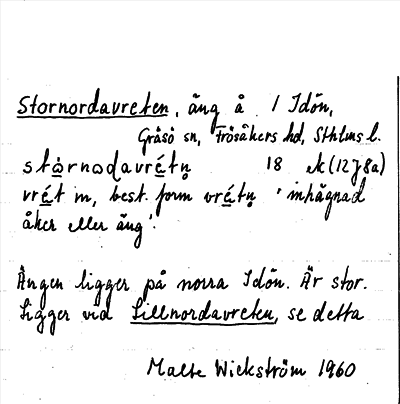 Stornordavreten, äng å 1 Idön,
Gräsö sn, Frösåkers hd, Sthlms l.
stårnodavrétn̥ 18 ek (12J8a)
vrét m, best. form vrétn̥ 'inhägnad
åker eller äng'.
Ängen ligger på norra Idön. Är stor.
Ligger vid Lillnordavreten, se detta
Malte Wickström 1960